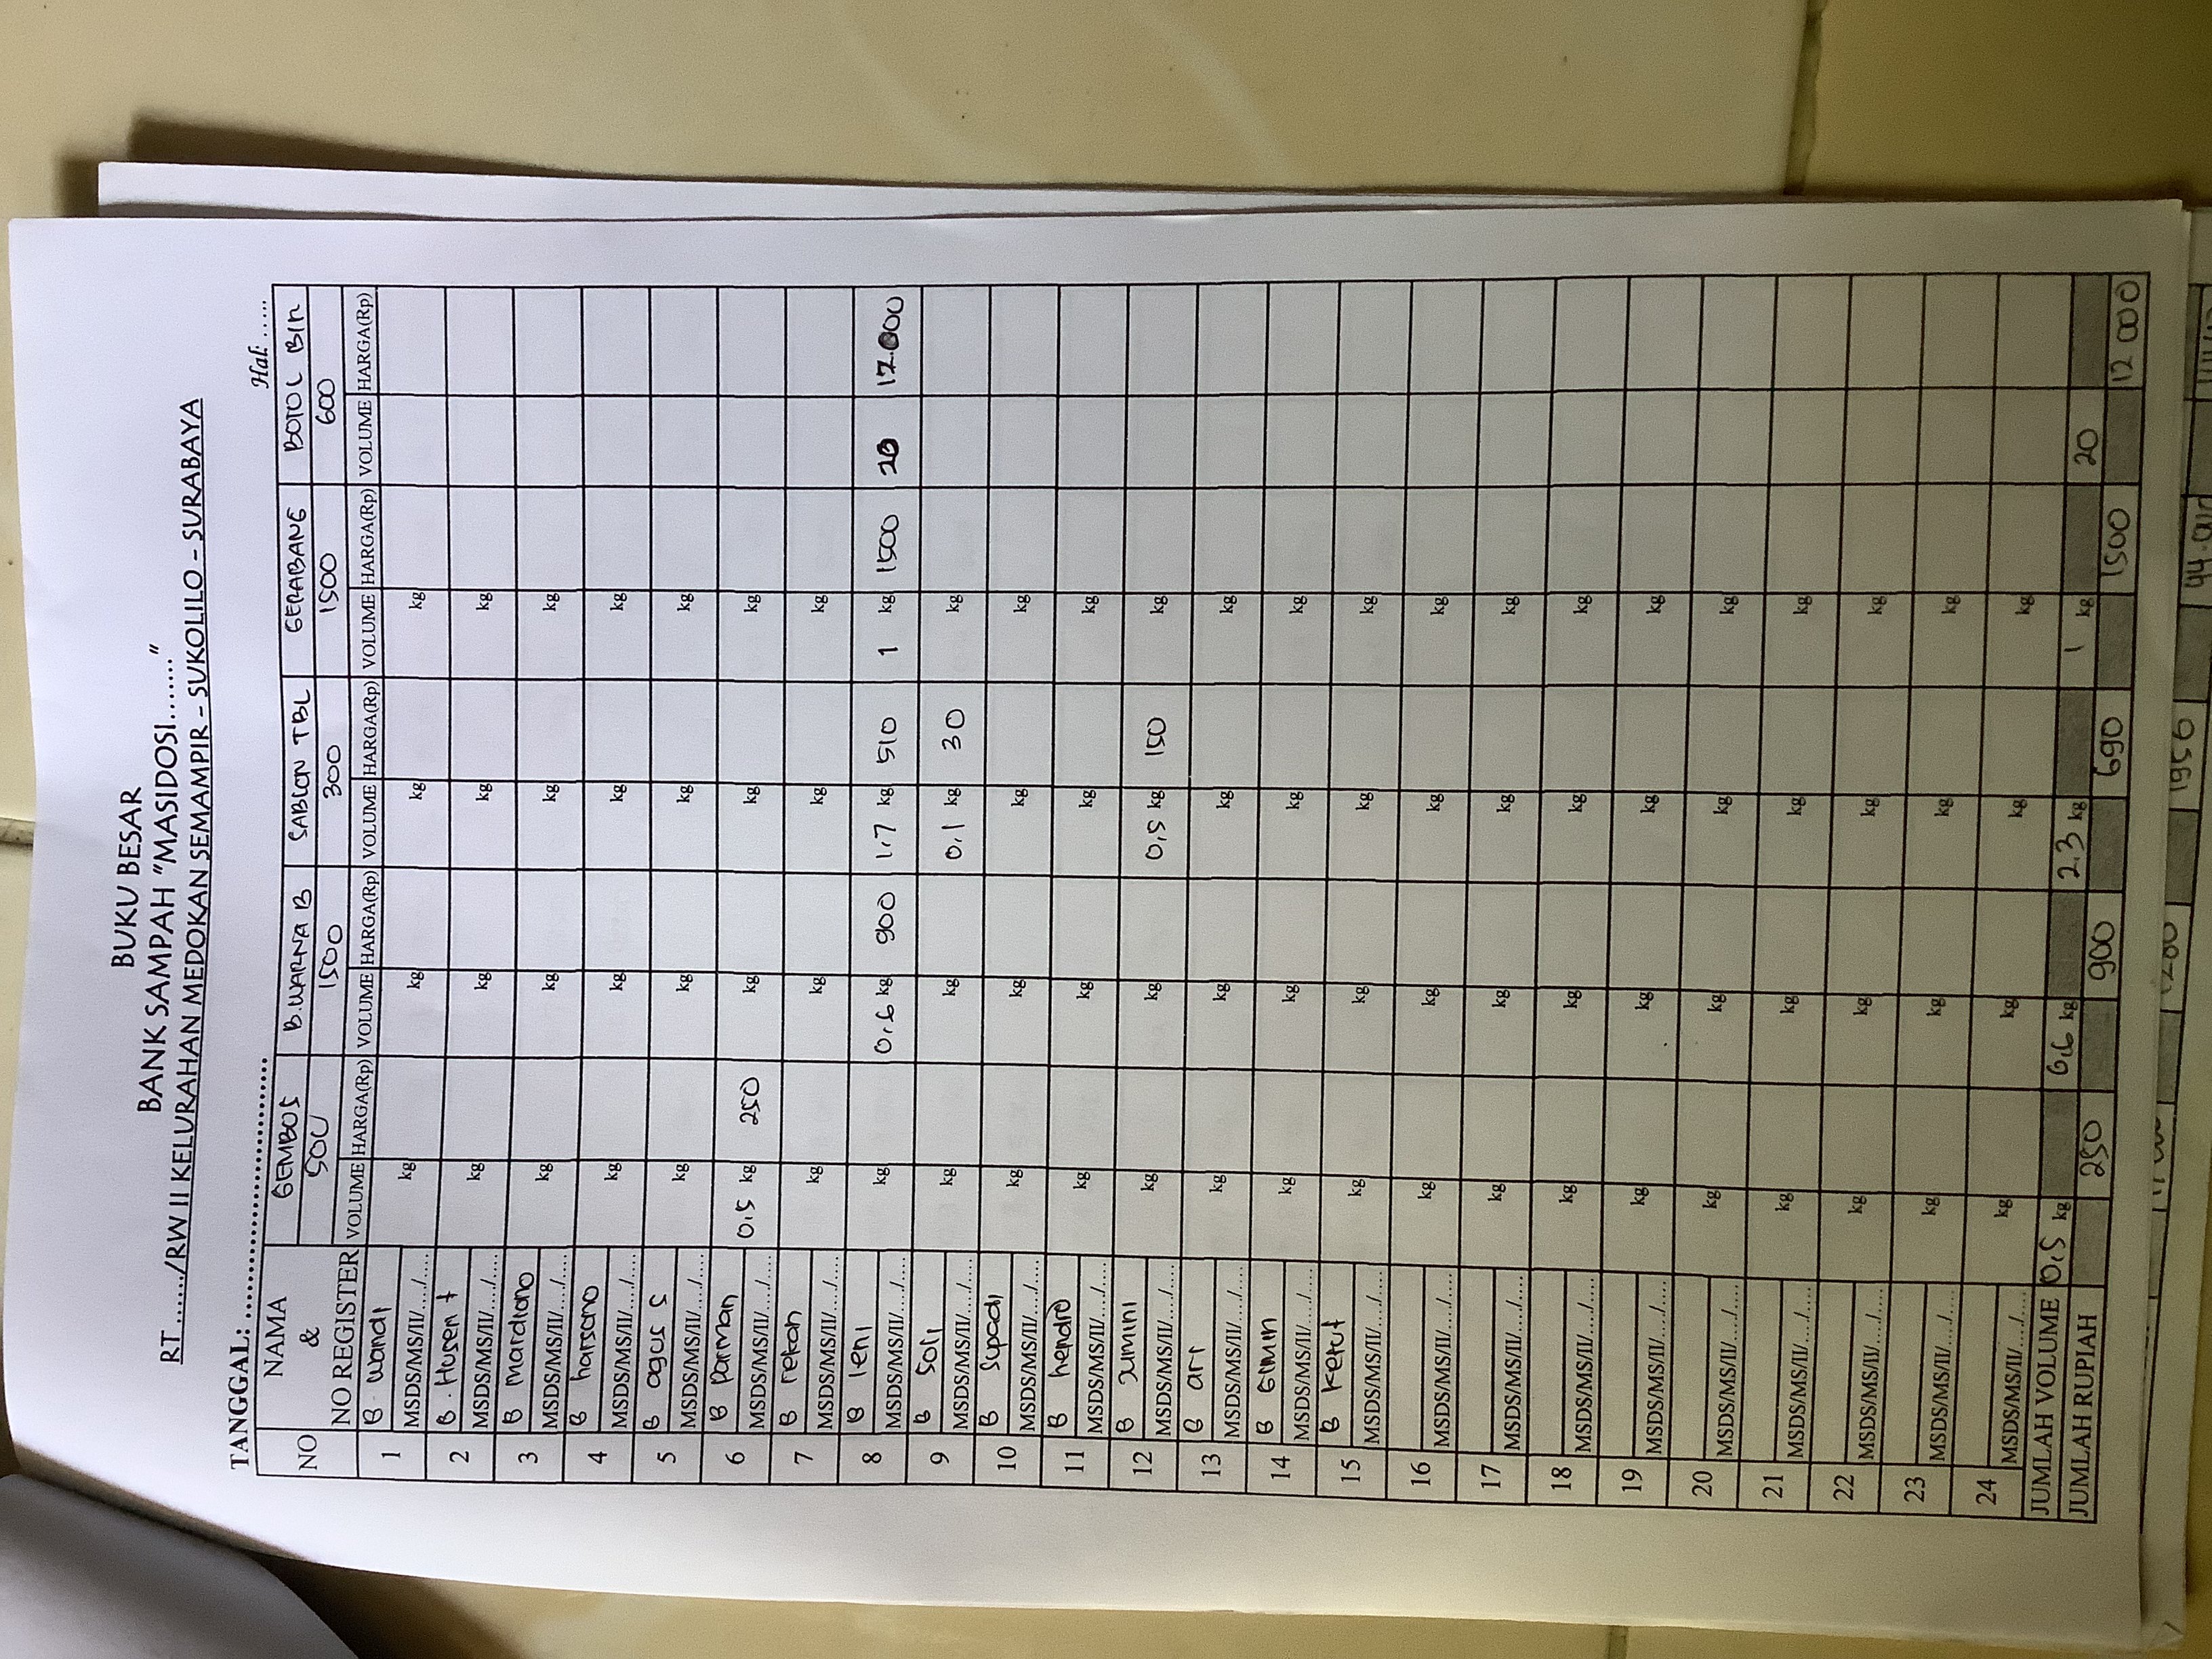 BUKU BESAR
BANK SAMPAH "MASIDOSI......."
RT ....../RW II KELURAHAN MEDOKAN SEMAMPIR - SUKOLILO - SURABAYA
TANGGAL: ............................. Hal: .....
NO NAMA & NO REGISTER GEMBOS B.WARNA B SABLON TBL GERABANG BOTOL BIR
500 1500 300 1500 600
VOLUME HARGA(Rp) VOLUME HARGA(Rp) VOLUME HARGA(Rp) VOLUME HARGA(Rp) VOLUME HARGA(Rp)
1 B wandi
MSDS/MS/II/..../.... kg kg kg kg
2 B. Husen t
MSDS/MS/II/..../.... kg kg kg kg
3 B mardiono
MSDS/MS/II/..../.... kg kg kg kg
4 B harsono
MSDS/MS/II/..../.... kg kg kg kg
5 B agus s
MSDS/MS/II/..../.... kg kg kg kg
6 B parman
MSDS/MS/II/..../.... 0,5 kg 250 kg kg kg
7 B rekan
MSDS/MS/II/..../.... kg kg kg kg
8 B leni
MSDS/MS/II/..../.... kg 0,6 kg 900 1,7 kg 510 1 kg 1500 20 12.000
9 B soli
MSDS/MS/II/..../.... kg kg 0,1 kg 30 kg
10 B supadi
MSDS/MS/II/..../.... kg kg kg kg
11 B hendro
MSDS/MS/II/..../.... kg kg kg kg
12 B jumini
MSDS/MS/II/..../.... kg kg 0,5 kg 150 kg
13 B ari
MSDS/MS/II/..../.... kg kg kg kg
14 B Gimin
MSDS/MS/II/..../.... kg kg kg kg
15 B Ketut
MSDS/MS/II/..../.... kg kg kg kg
16 MSDS/MS/II/..../.... kg kg kg kg
17 MSDS/MS/II/..../.... kg kg kg kg
18 MSDS/MS/II/..../.... kg kg kg kg
19 MSDS/MS/II/..../.... kg kg kg kg
20 MSDS/MS/II/..../.... kg kg kg kg
21 MSDS/MS/II/..../.... kg kg kg kg
22 MSDS/MS/II/..../.... kg kg kg kg
23 MSDS/MS/II/..../.... kg kg kg kg
24 MSDS/MS/II/..../.... kg kg kg kg
JUMLAH VOLUME 0,5 kg 0,6 kg 2.3 kg 1 kg 20
JUMLAH RUPIAH 250 900 690 1500 12 000
1280 1956